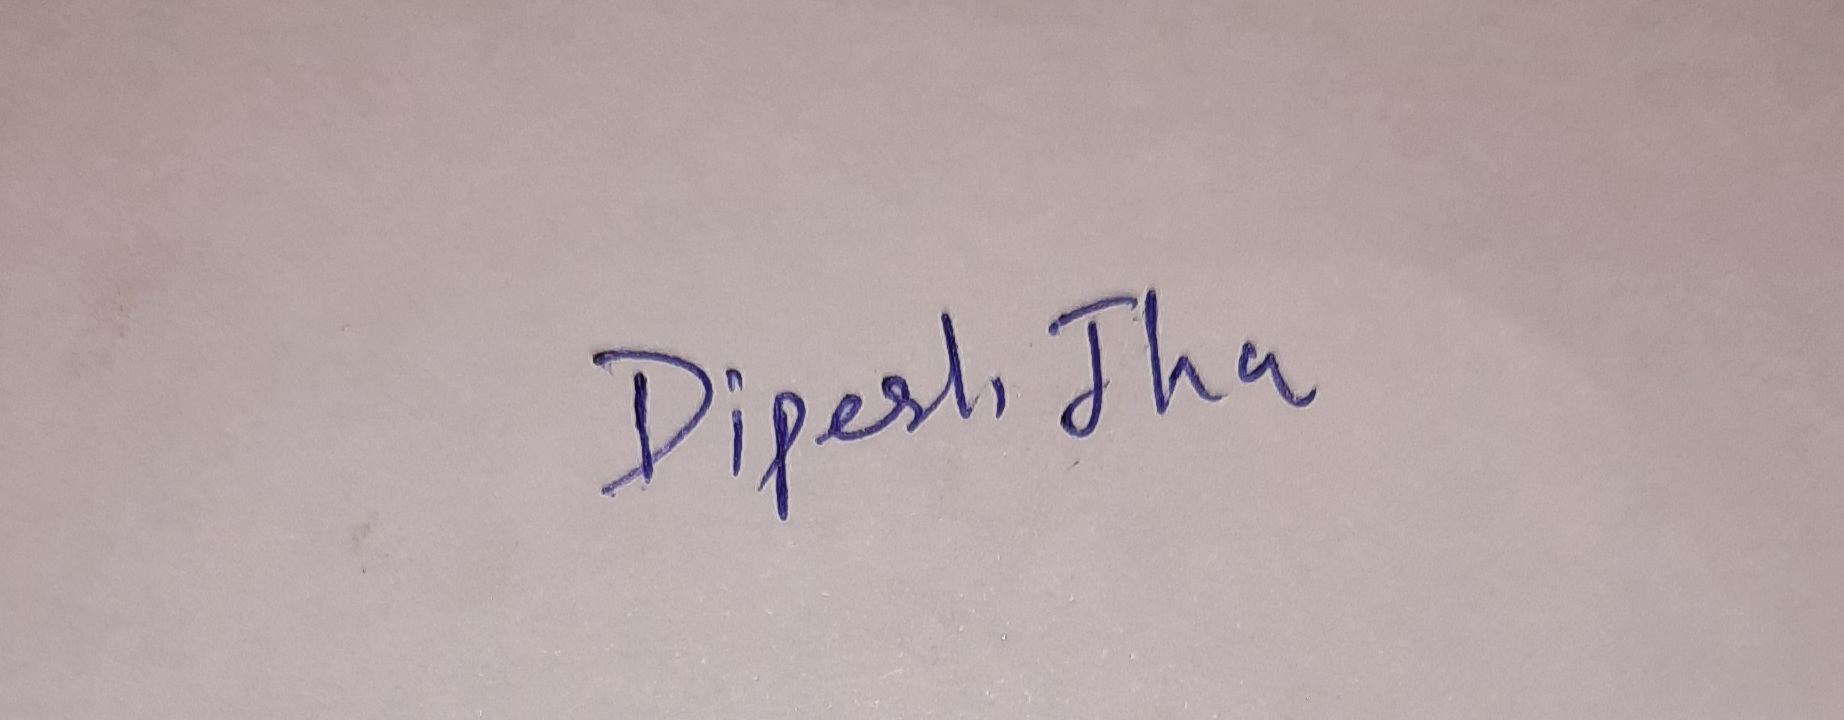 Dipesh Jha